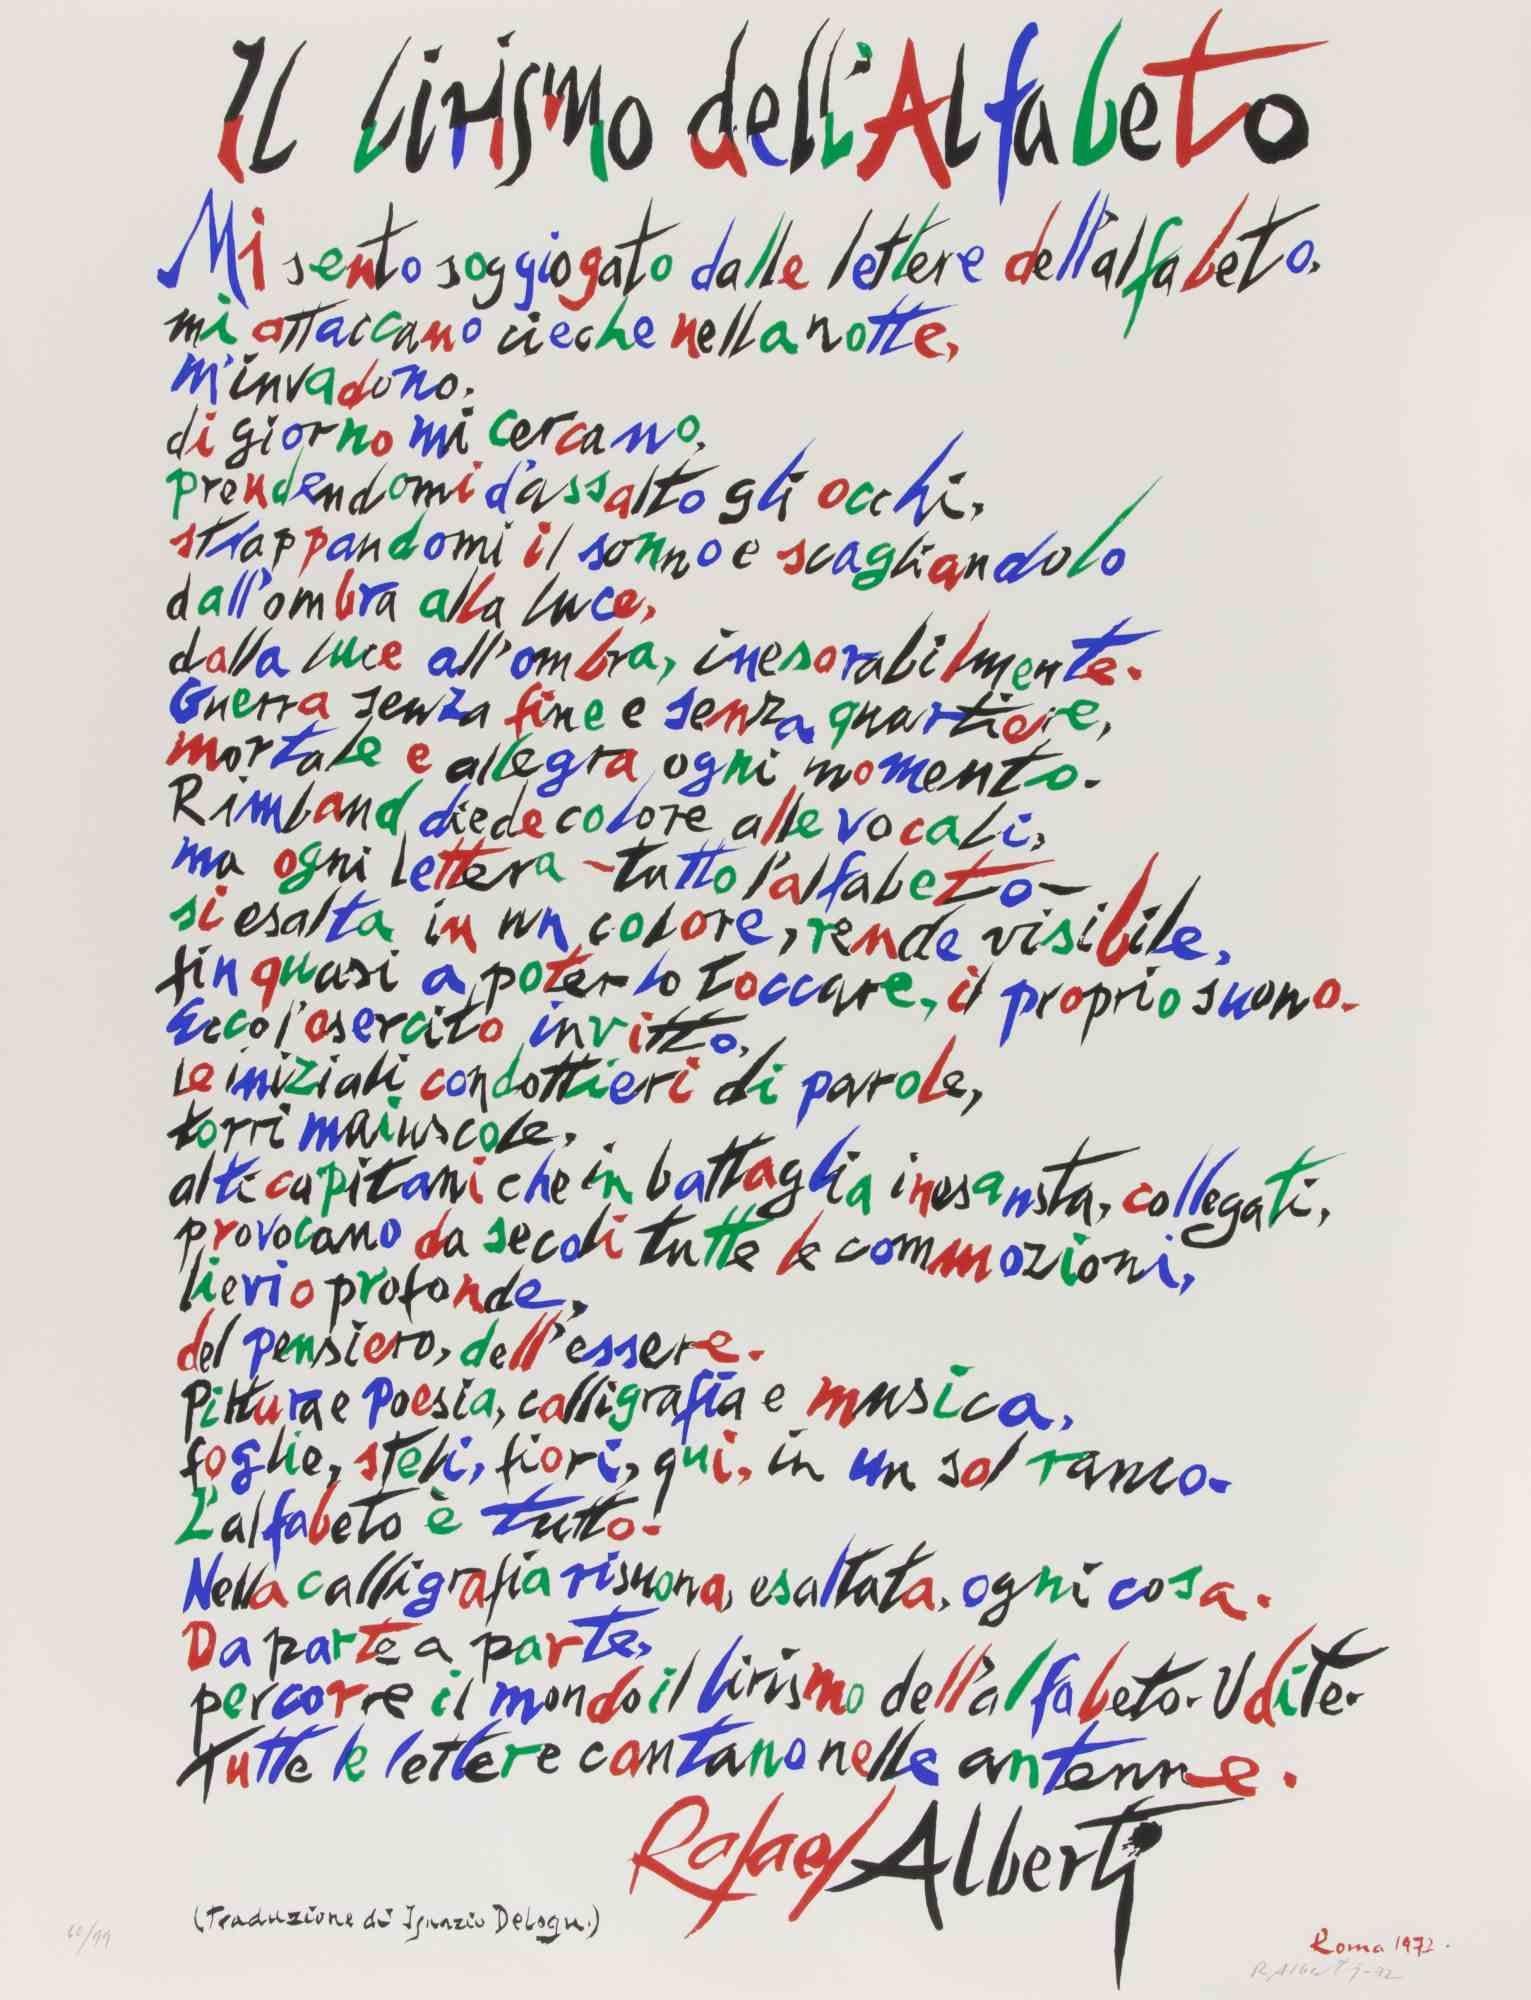 Il lirismo dell'Alfabeto
Mi sento soggiogato dalle lettere dell'alfabeto,
mi attaccano cieche nella notte,
m'invadono,
di giorno mi cercano,
prendendomi d'assalto gli occhi,
strappandomi il sonno e scagliandolo
dall'ombra alla luce,
dalla luce all'ombra, inesorabilmente.
Guerra senza fine e senza quartiere,
mortale e allegra ogni momento.
Rimbaud diede colore alle vocali,
ma ogni lettera - tutto l'alfabeto -
si esalta in un colore, rende visibile,
fin quasi a poterlo toccare, il proprio suono.
Ecco l'esercito invitto,
le iniziali condottieri di parole,
torri maiuscole,
alti capitani che in battaglia inesausta, collegati,
provocano da secoli tutte le commozioni,
lievi o profonde,
del pensiero, dell'essere.
Pittura e Poesia, calligrafia e musica,
foglie, steli, fiori, qui, in un sol ramo.
L'alfabeto è tutto.
Nella calligrafia risuona, esaltata, ogni cosa.
Da parte a parte,
percorre il mondo il lirismo dell'alfabeto. Udite.
Tutte le lettere cantano nelle antenne.
Rafael Alberti
(Traduzione di Ignazio Delogu.)
60/99
Roma 1972.
R. Alberti 9-92